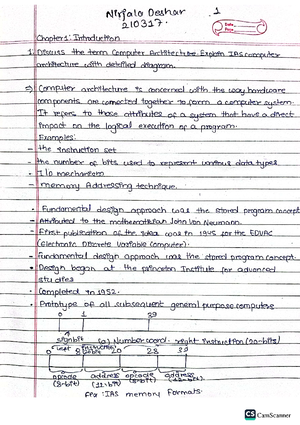 Nirjala Deshar
1
210317.
Date
Page
Chapter 1: Introduction
1. Discuss the term Computer Architecture. Explain IAS computer
architecture with detailed diagram.
⇒ Computer architecture is concerned with the way hardware
components are connected together to form a computer system.
It refers to those attributes of a system that have a direct
impact on the logical execution of a program.
Examples:
- the instruction set
- the number of bits used to represent various data types
- I/O mechanism
- memory Addressing technique.
- Fundamental design approach was the stored program concept
- Attributed to the mathematician John von Neumann.
- First publication of the idea was in 1945 for the EDVAC
(Electronic Discrete Variable Computer).
- fundamental design approach was the stored program concept.
- Design began at the princeton Institute for advanced
studies
- Completed in 1952.
- Prototype of all subsequent general purpose computers
0 1 39
sign bit (a) Number word. right instruction (20-bits)
0 8 20 28 39
opcode address opcode address
(8-bit) (12-bit) (8-bit) (12-bit)
fig: IAS memory Formats.
CS CamScanner